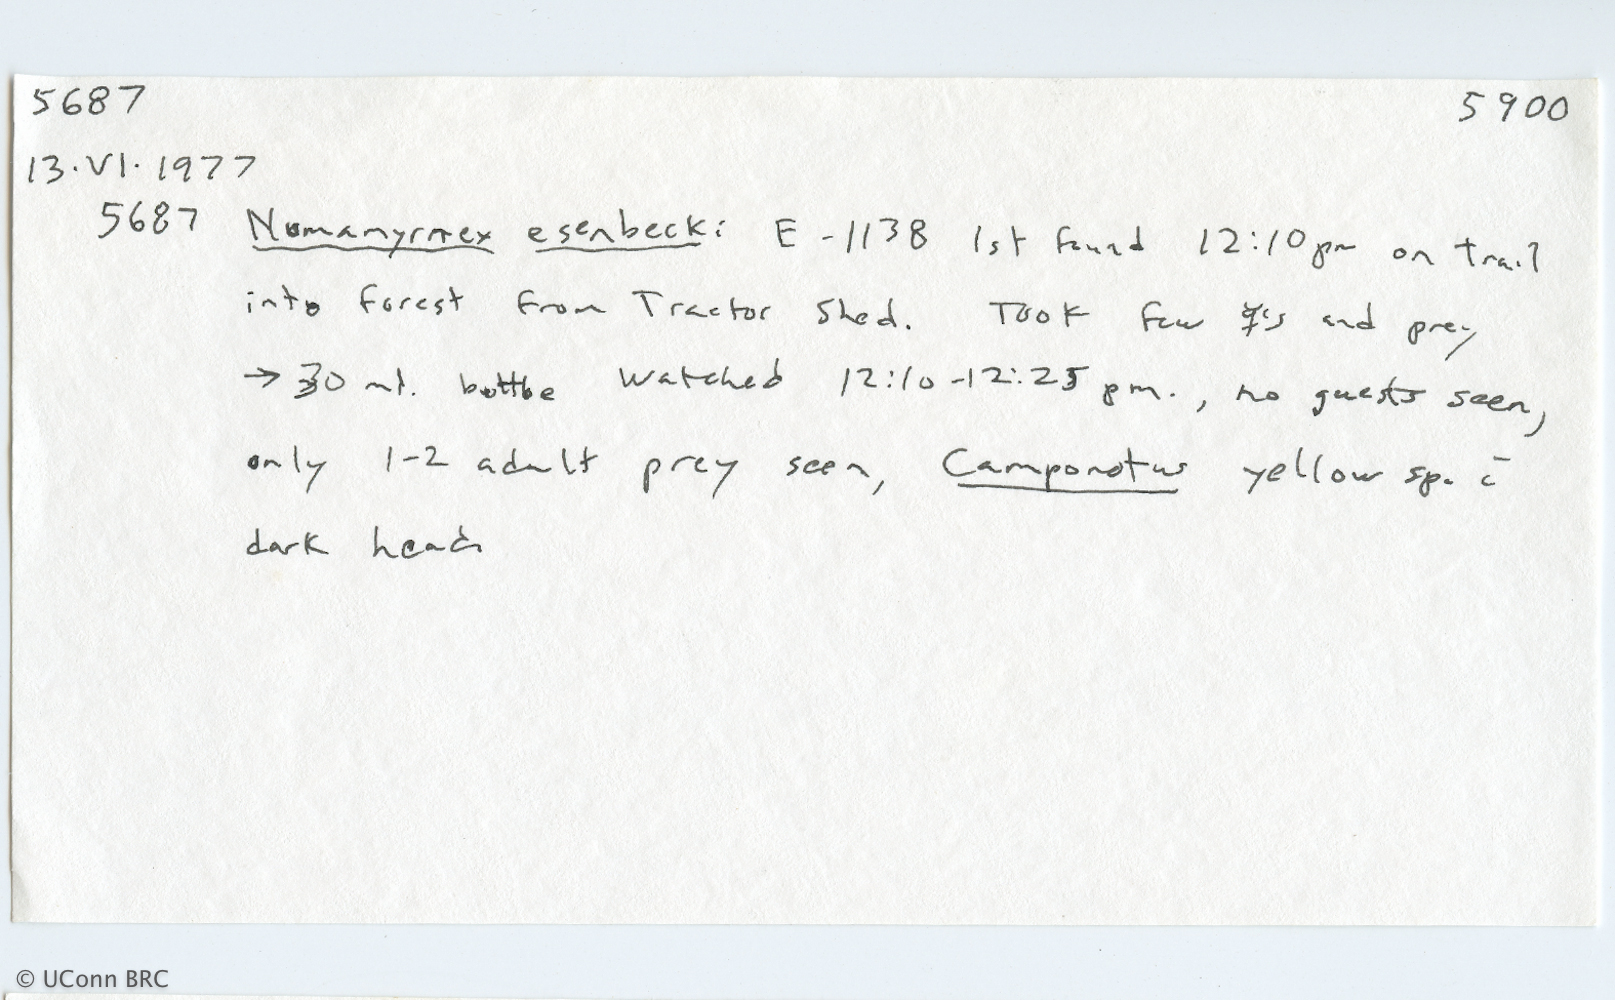 5687 5900
13.VI.1977
5687 Nomamyrmex esenbecki E-1138 1st found 12:10 pm on trail
into forest from Tractor Shed. Took few ☿'s and prey
→ 30 ml. bottle watched 12:10-12:25 pm., no guests seen,
only 1-2 adult prey seen, Camponotus yellow sp. c̄
dark head
© UConn BRC